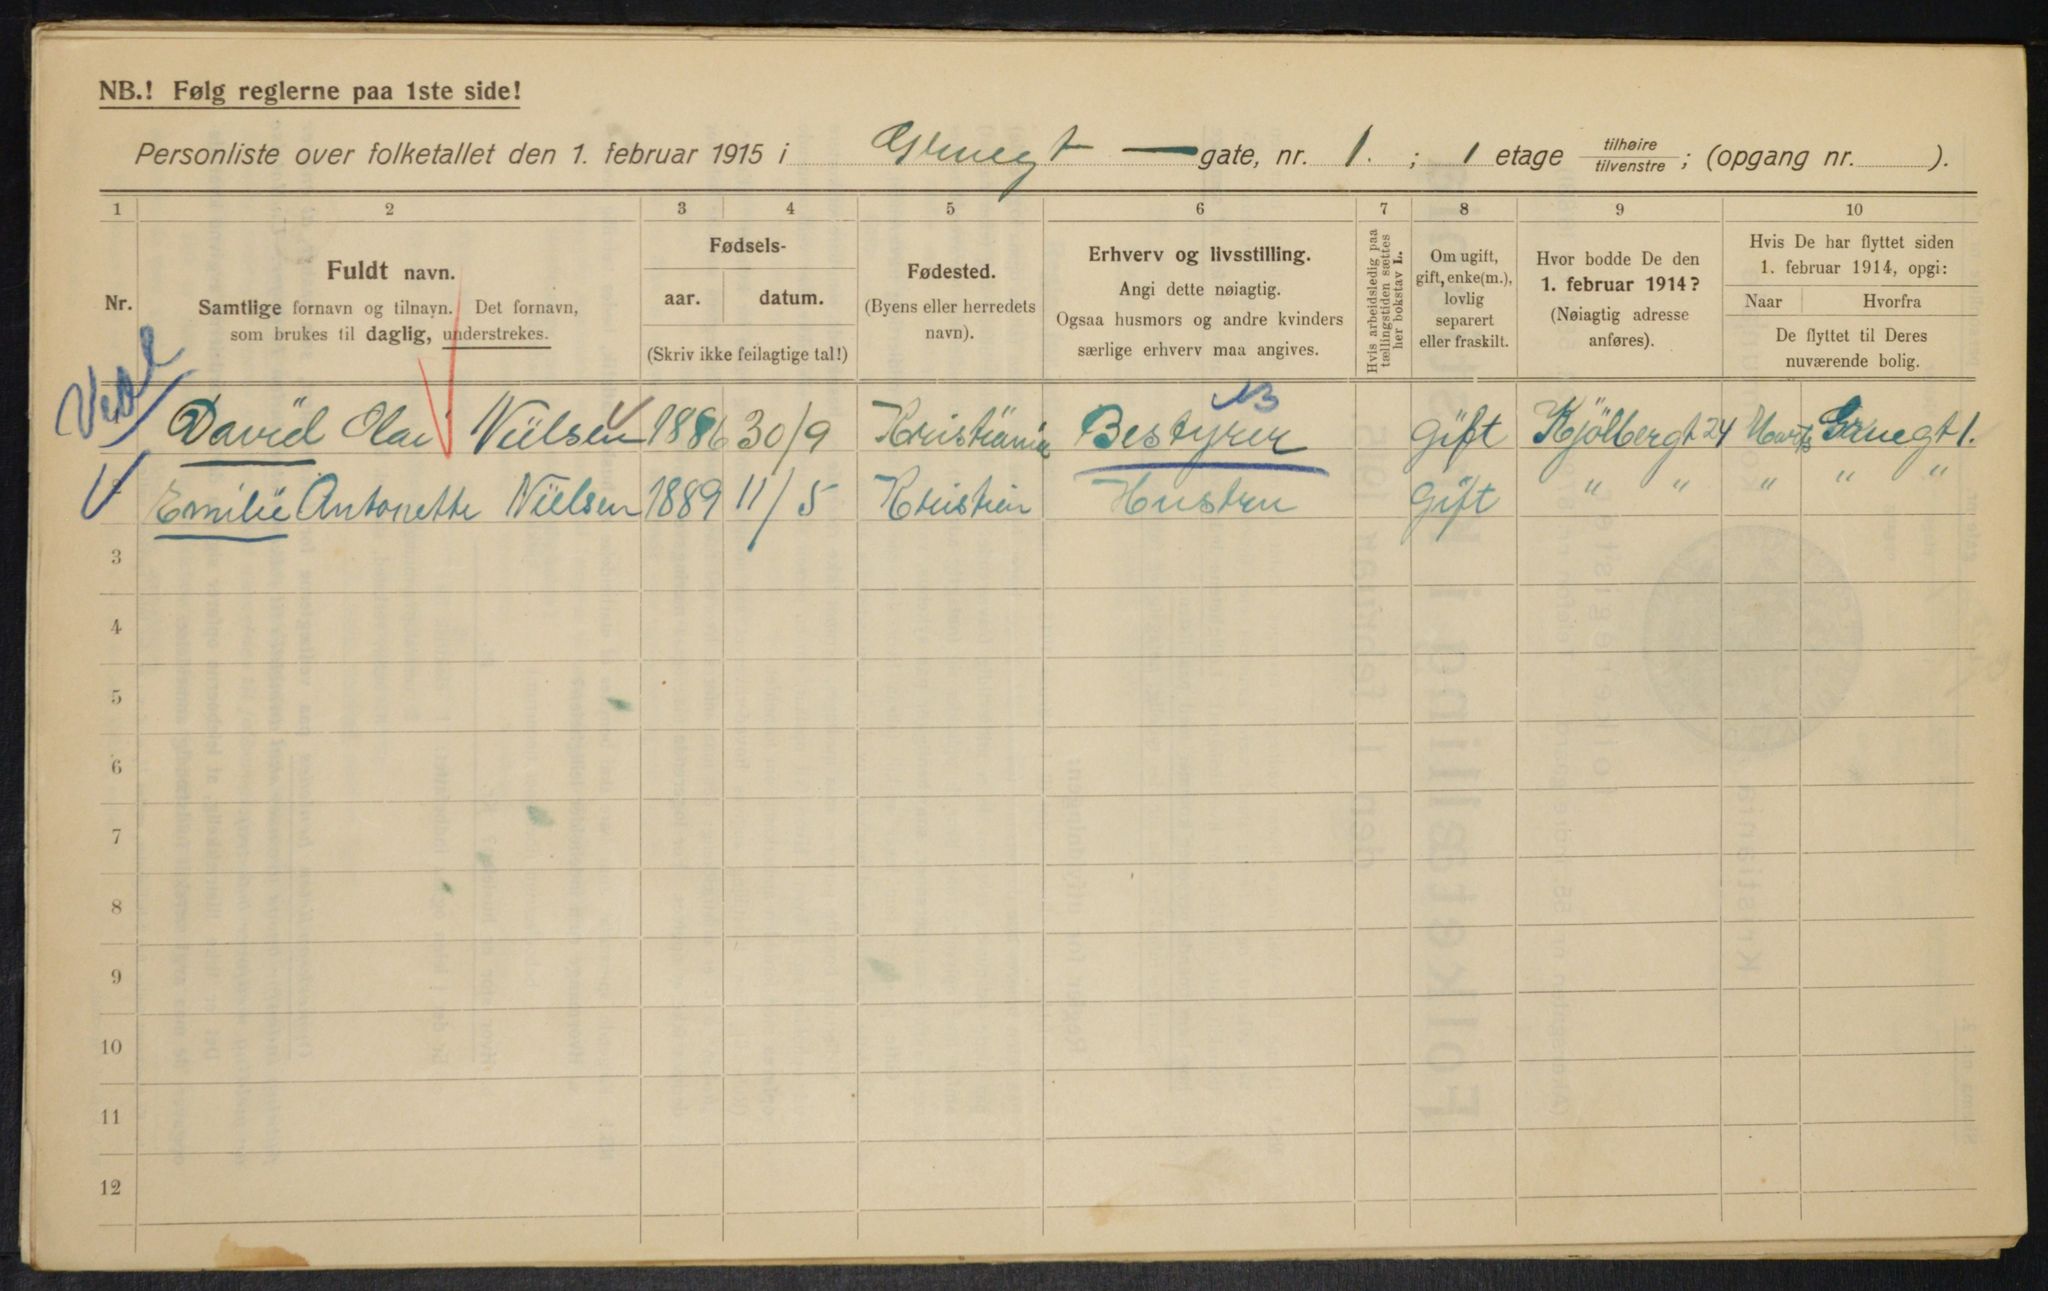 NB.! Følg reglerne paa 1ste side!
Personliste over folketallet den 1. februar 1915 i Gruegt — gate, nr. 1. ; 1 etage tilhøire / tilvenstre ; (opgang nr. ).
1 2 3 4 5 6 7 8 9 10
Nr.
Fuldt navn.
Samtlige fornavn og tilnavn. Det fornavn,
som brukes til daglig, understrekes.
Fødsels-
aar. datum.
(Skriv ikke feilagtige tal!)
Fødested.
(Byens eller herredets
navn).
Erhverv og livsstilling.
Angi dette nøiagtig.
Ogsaa husmors og andre kvinders
særlige erhverv maa angives.
Hvis arbeidsledig paa
tællingstiden sættes
her bokstav L.
Om ugift,
gift, enke(m.),
lovlig
separert
eller fraskilt.
Hvor bodde De den
1. februar 1914?
(Nøiagtig adresse
anføres).
Hvis De har flyttet siden
1. februar 1914, opgi:
Naar Hvorfra
De flyttet til Deres
nuværende bolig.
David Olai Nielsen 1886 30/9 Kristiania Bestyrer gift Kjölbergt 24 Gruegt 1.
Emilie Antonette Nielsen 1889 11/5 Kristian Hustru Gift " " " " "
3
4
5
6
7
8
9
10
11
12